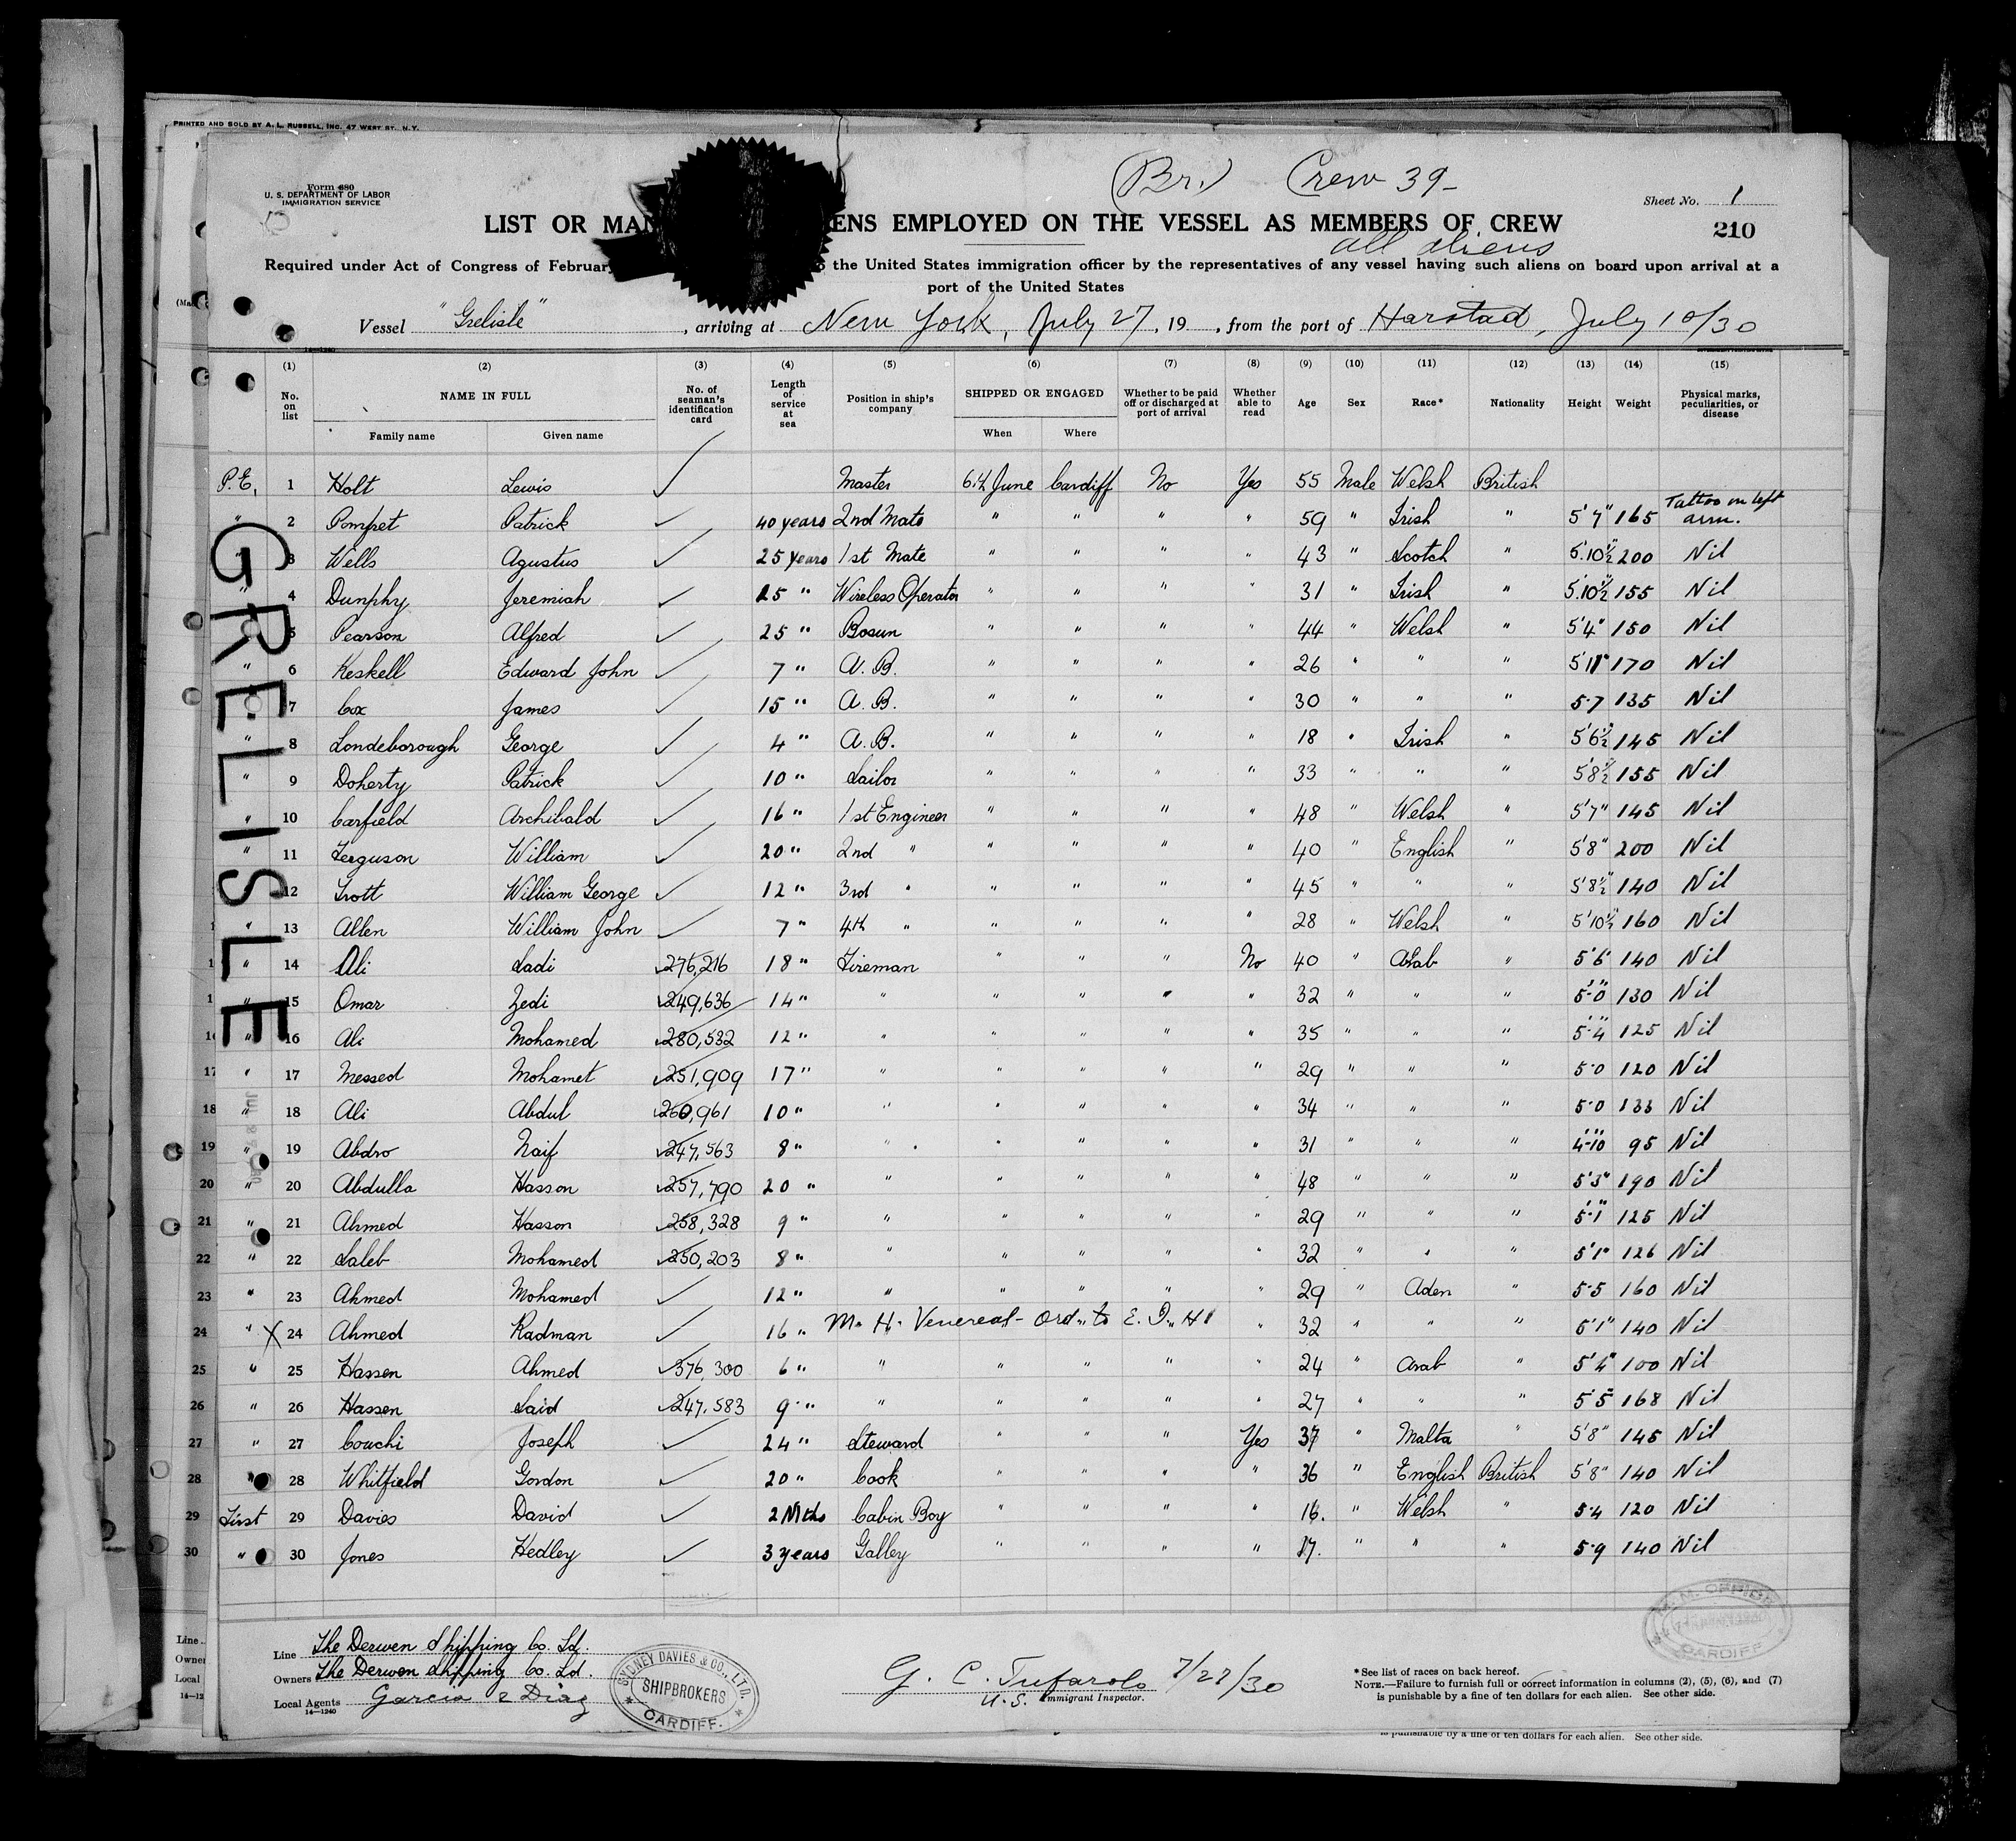 PRINTED AND SOLD BY A. L. RUSSELL, INC. 47 WEST ST. N.Y.
(Br.) Crew 39-
Form 680
U. S. DEPARTMENT OF LABOR
IMMIGRATION SERVICE
Sheet No. 1
LIST OR MAN ENS EMPLOYED ON THE VESSEL AS MEMBERS OF CREW
210
all aliens
Required under Act of Congress of February the United States immigration officer by the representatives of any vessel having such aliens on board upon arrival at a
port of the United States
Vessel "Grelisle", arriving at New York, July 27, 19 , from the port of Harstad, July 10/30
(1) (2) (3) (4) (5) (6) (7) (8) (9) (10) (11) (12) (13) (14) (15)
No. on list NAME IN FULL Family name Given name No. of seaman's identification card Length of service at sea Position in ship's company SHIPPED OR ENGAGED When Where Whether to be paid off or discharged at port of arrival Whether able to read Age Sex Race* Nationality Height Weight Physical marks, peculiarities, or disease
GRELISLE
P.E. 1 Holt Lewis Master 6th June Cardiff No Yes 55 Male Welsh British
" 2 Pompret Patrick 40 years 2nd Mate " " " " 59 " Irish " 5'7" 165 Tattoo on left arm.
" 3 Wells Agustus 25 years 1st Mate " " " " 43 " Scotch " 5'10½" 200 Nil
" 4 Dunphy Jeremiah 15 " Wireless Operator " " " " 31 " Irish " 5'10½" 155 Nil
" 5 Pearson Alfred 25 " Bosun " " " " 44 " Welsh " 5'4" 150 Nil
" 6 Keskell Edward John 7 " A.B. " " " " 26 " " " 5'11" 170 Nil
" 7 Cox James 15 " A.B. " " " " 30 " " " 5.7 135 Nil
" 8 Londeborough George 4 " A.B. " " " " 18 " Irish " 5'6½" 145 Nil
" 9 Doherty Patrick 10 " Sailor " " " " 33 " " " 5'8½" 155 Nil
" 10 Carfield Archibald 16 " 1st Engineer " " " " 48 " Welsh " 5'7" 145 Nil
" 11 Ferguson William 20 " 2nd " " " " " 40 " English " 5'8" 200 Nil
12 Trott William George 12 " 3rd " " " " " 45 " " " 5'8½" 140 Nil
" 13 Allen William John 7 " 4th " " " " " 28 " Welsh " 5'10½" 160 Nil
" 14 Ali Sadi 276,216 18 " Fireman " " " No 40 " Arab " 5'6" 140 Nil
" 15 Omar Zedi 249,636 14 " " " " " " 32 " " " 5'-0" 130 Nil
" 16 Ali Mohamed 280,532 12 " " " " " " 35 " " " 5'-4" 125 Nil
17 " 17 Messed Mohamet 251,909 17 " " " " " " 29 " " " 5.0 120 Nil
18 " 18 Ali Abdul 260,961 10 " " " " " " 34 " " " 5.0 133 Nil
19 " 19 Abdro Naif 247,563 8 " " " " " " 31 " " " 4'-10" 95 Nil
20 " 20 Abdulla Hasson 257,790 20 " " " " " " 48 " " " 5'3" 190 Nil
21 " 21 Ahmed Hasson 258,328 9 " " " " " " 29 " " " 5'-1" 125 Nil
22 " 22 Saleb Mohamed 250,203 8 " " " " " " 32 " " " 5'1" 126 Nil
23 " 23 Ahmed Mohamed 12 " " " " " " 29 " Aden " 5.5 160 Nil
24 " X 24 Ahmed Radman 16 " M. H. Venereal - Ord. to E. I. H. " 32 " " " 5'1" 140 Nil
25 " 25 Hassen Ahmed 376,300 6 " " " " " " 24 " Arab " 5'4" 100 Nil
26 " 26 Hassen Said 247,583 9 " " " " " " 27 " " " 5'5" 168 Nil
27 " 27 Couchi Joseph 24 " Steward " " " Yes 37 " Malta " 5'8" 145 Nil
28 " 28 Whitfield Gordon 20 " Cook " " " " 36 " English British 5'8" 140 Nil
29 First 29 Davies David 2 Mths Cabin Boy " " " " 16. " Welsh " 5.4 120 Nil
30 " 30 Jones Hedley 3 years Galley " " " " 17. " " " 5.9 140 Nil
Line The Derwen Shipping Co. Ld.
Owners The Derwen Shipping Co. Ld.
Local Agents Garcia & Diaz
14—1240
SYDNEY DAVIES & CO., LTD. SHIPBROKERS CARDIFF.
G. C. Tufarolo 7/27/30
U.S. Immigrant Inspector.
CARDIFF
*See list of races on back hereof.
NOTE.—Failure to furnish full or correct information in columns (2), (5), (6), and (7)
is punishable by a fine of ten dollars for each alien. See other side.
is punishable by a fine of ten dollars for each alien. See other side.
Line
Owner
Local
14—12